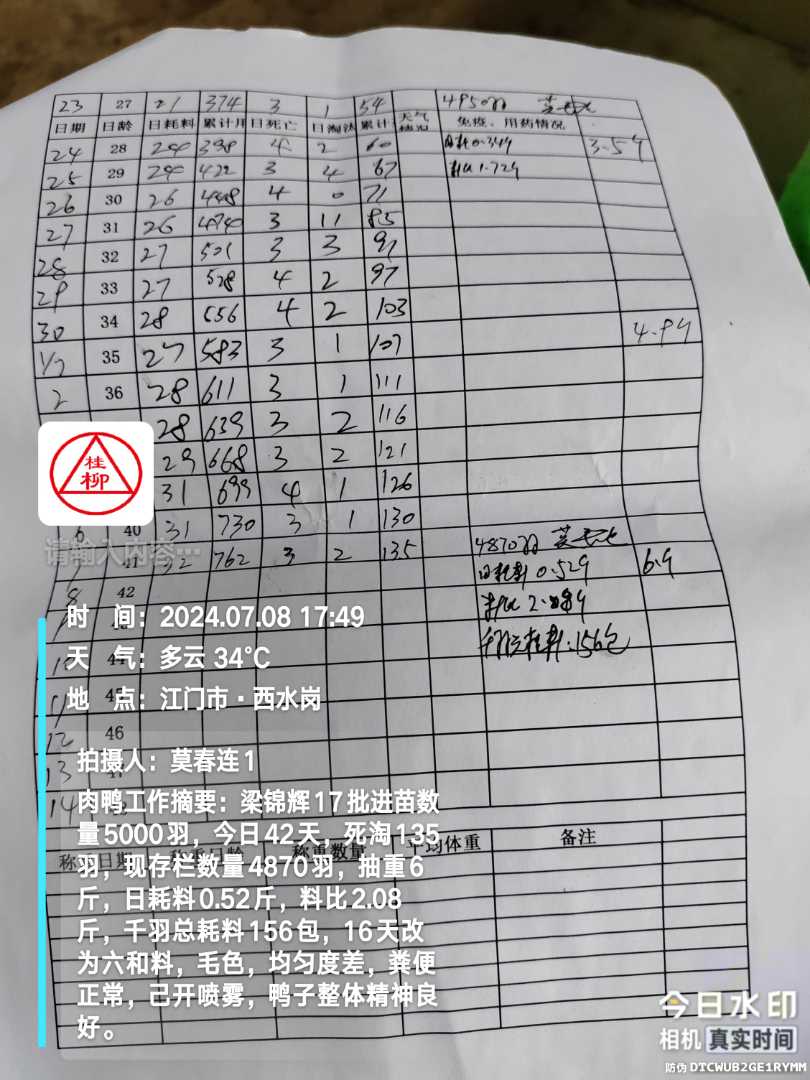 23 27 21 374 3 1 54 4950羽
日期 日龄 日耗料 累计用 日死亡 日淘汰 累计 天气情况 免疫、用药情况
24 28 24 398 4 2 60 日耗0.34斤 3.5斤
25 29 24 422 3 4 67 料比1.72斤
26 30 26 448 4 0 71
27 31 26 474 3 11 85
28 32 27 501 3 3 91
29 33 27 528 4 2 97
30 34 28 556 4 2 103
1/7 35 27 583 3 1 107 4.9斤
2 36 28 611 3 1 111
28 639 3 2 116
29 668 3 2 121
桂柳
31 699 4 1 126
6 40 31 730 3 1 130 4870羽
请输入内容…
41 32 762 3 2 135 日耗料0.52斤 6斤
8 42 料比2.08斤
千羽总耗料:156包
时 间：2024.07.08 17:49
天 气：多云 34℃
地 点：江门市·西水岗
12 46
13
14
拍摄人：莫春连1
肉鸭工作摘要：梁锦辉17批进苗数
量5000羽，今日42天，死淘135
羽，现存栏数量4870羽，抽重6
斤，日耗料0.52斤，料比2.08
斤，千羽总耗料156包，16天改
为六和料，毛色，均匀度差，粪便
正常，己开喷雾，鸭子整体精神良
好。
称重日期 称重日龄 称重数量 平均体重 备注
今日水印
相机 真实时间
防伪 DTCWUB2GE1RYMM